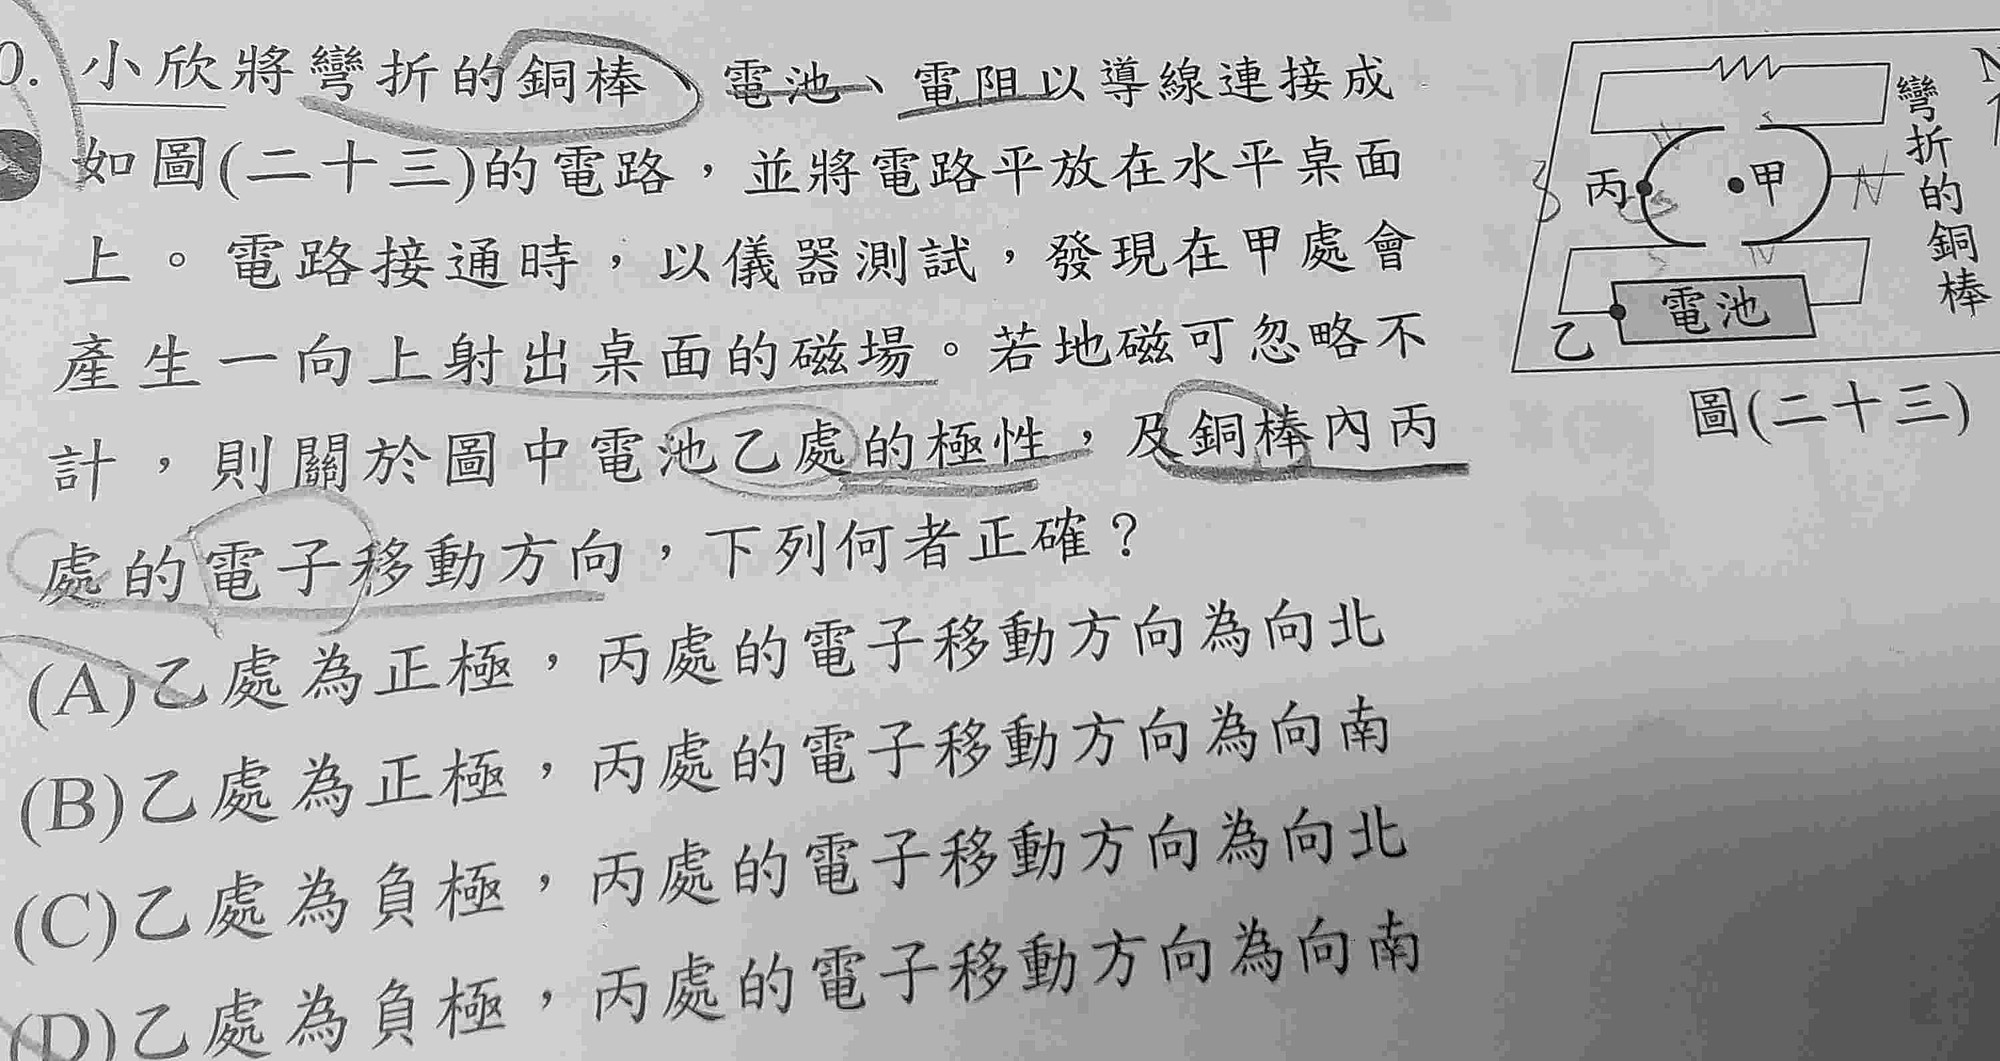 0. 小欣將彎折的銅棒、電池、電阻以導線連接成
如圖(二十三)的電路，並將電路平放在水平桌面
上。電路接通時，以儀器測試，發現在甲處會
產生一向上射出桌面的磁場。若地磁可忽略不
計，則關於圖中電池乙處的極性，及銅棒內丙
處的電子移動方向，下列何者正確？
(A)乙處為正極，丙處的電子移動方向為向北
(B)乙處為正極，丙處的電子移動方向為向南
(C)乙處為負極，丙處的電子移動方向為向北
(D)乙處為負極，丙處的電子移動方向為向南
N
彎折的銅棒
丙
甲
N
電池
乙
圖(二十三)